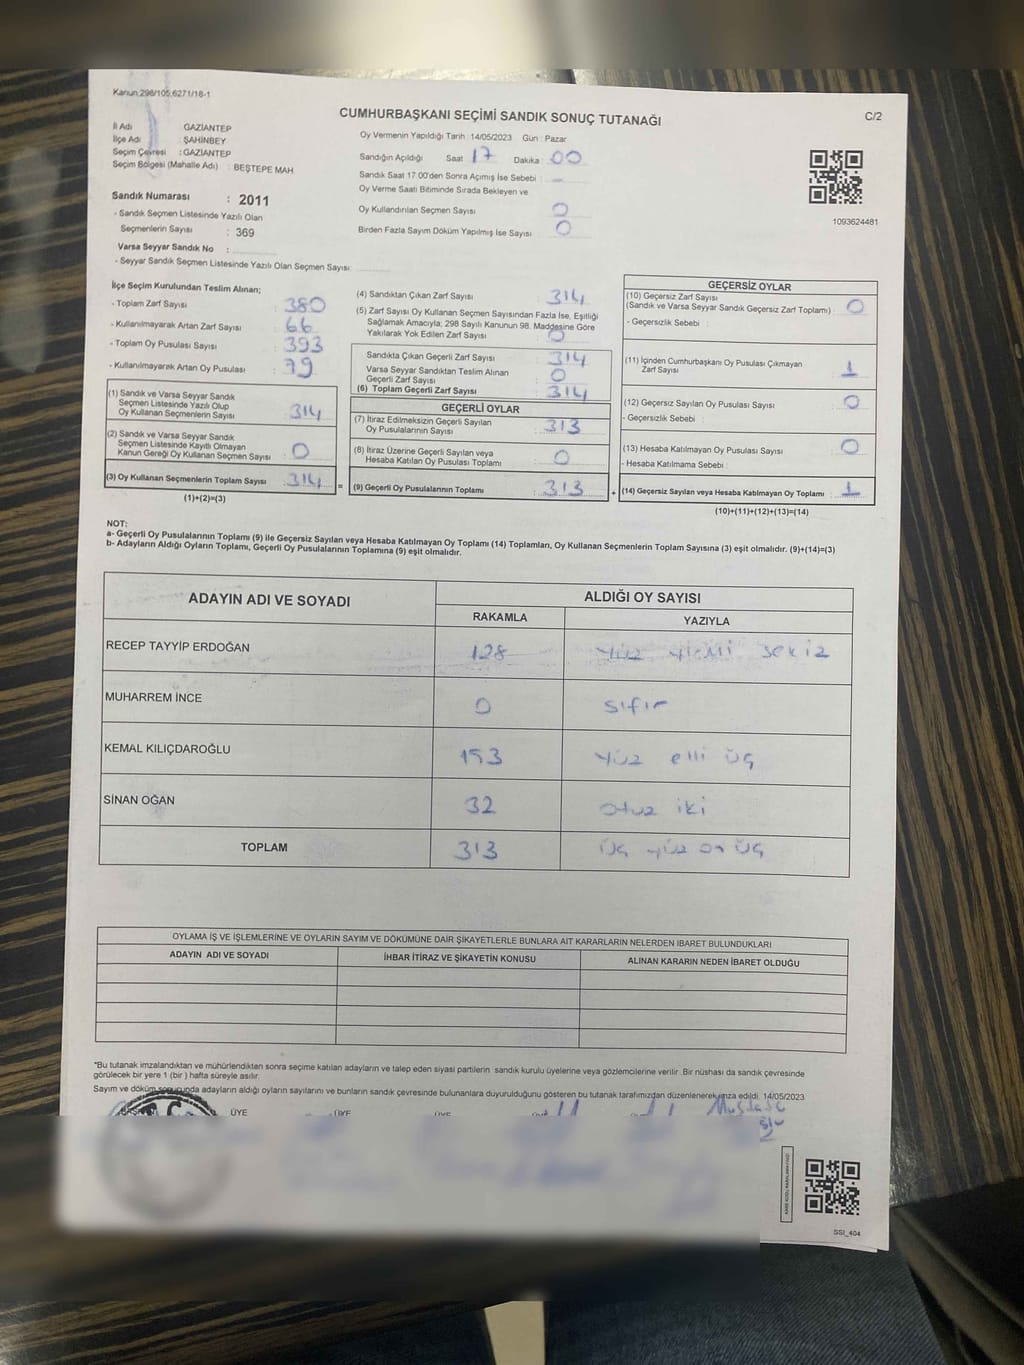 Kanun:298/105;6271/18-1
CUMHURBAŞKANI SEÇİMİ SANDIK SONUÇ TUTANAĞI
C/2
İl Adı GAZİANTEP
İlçe Adı : ŞAHİNBEY
Seçim Çevresi : GAZİANTEP
Seçim Bölgesi (Mahalle Adı) : BEŞTEPE MAH
Sandık Numarası : 2011
- Sandık Seçmen Listesinde Yazılı Olan
Seçmenlerin Sayısı : 369
Varsa Seyyar Sandık No :
- Seyyar Sandık Seçmen Listesinde Yazılı Olan Seçmen Sayısı:
Oy Vermenin Yapıldığı Tarih :14/05/2023 Gün : Pazar
Sandığın Açıldığı Saat 17 Dakika : 00
Sandık Saat 17.00'den Sonra Açımış İse Sebebi : -
Oy Verme Saati Bitiminde Sırada Bekleyen ve
Oy Kullandırılan Seçmen Sayısı 0
Birden Fazla Sayım Döküm Yapılmış İse Sayısı : 0
1093624481
İlçe Seçim Kurulundan Teslim Alınan;
- Toplam Zarf Sayısı : 380
- Kullanılmayarak Artan Zarf Sayısı : 66
- Toplam Oy Pusulası Sayısı : 393
- Kullanılmayarak Artan Oy Pusulası : 79
(1) Sandık ve Varsa Seyyar Sandık
Seçmen Listesinde Yazılı Olup
Oy Kullanan Seçmenlerin Sayısı : 314
(2) Sandık ve Varsa Seyyar Sandık
Seçmen Listesinde Kayıtlı Olmayan
Kanun Gereği Oy Kullanan Seçmen Sayısı : 0
(3) Oy Kullanan Seçmenlerin Toplam Sayısı : 314 =
(1)+(2)=(3)
(4) Sandıktan Çıkan Zarf Sayısı : 314
(5) Zarf Sayısı Oy Kullanan Seçmen Sayısından Fazla İse, Eşitliği
Sağlamak Amacıyla; 298 Sayılı Kanunun 98. Maddesine Göre
Yakılarak Yok Edilen Zarf Sayısı : 0
Sandıkta Çıkan Geçerli Zarf Sayısı : 314
Varsa Seyyar Sandıktan Teslim Alınan
Geçerli Zarf Sayısı : 0
(6) Toplam Geçerli Zarf Sayısı : 314
GEÇERLİ OYLAR
(7) İtiraz Edilmeksizin Geçerli Sayılan
Oy Pusulalarının Sayısı : 313
(8) İtiraz Üzerine Geçerli Sayılan veya
Hesaba Katılan Oy Pusulası Toplamı : 0
(9) Geçerli Oy Pusulalarının Toplamı : 313 +
GEÇERSİZ OYLAR
(10) Geçersiz Zarf Sayısı
(Sandık ve Varsa Seyyar Sandık Geçersiz Zarf Toplamı) : 0
- Geçersizlik Sebebi :
(11) İçinden Cumhurbaşkanı Oy Pusulası Çıkmayan
Zarf Sayısı : 1
(12) Geçersiz Sayılan Oy Pusulası Sayısı : 0
- Geçersizlik Sebebi :
(13) Hesaba Katılmayan Oy Pusulası Sayısı : 0
- Hesaba Katılmama Sebebi :
(14) Geçersiz Sayılan veya Hesaba Katılmayan Oy Toplamı : 1
(10)+(11)+(12)+(13)=(14)
NOT:
a- Geçerli Oy Pusulalarının Toplamı (9) ile Geçersiz Sayılan veya Hesaba Katılmayan Oy Toplamı (14) Toplamları, Oy Kullanan Seçmenlerin Toplam Sayısına (3) eşit olmalıdır. (9)+(14)=(3)
b- Adayların Aldığı Oyların Toplamı, Geçerli Oy Pusulalarının Toplamına (9) eşit olmalıdır.
ADAYIN ADI VE SOYADI ALDIĞI OY SAYISI
RAKAMLA YAZIYLA
RECEP TAYYİP ERDOĞAN 128 Yüz yirmi sekiz
MUHARREM İNCE 0 sıfır
KEMAL KILIÇDAROĞLU 153 yüz elli üç
SİNAN OĞAN 32 otuz iki
TOPLAM 313 üç yüz on üç
OYLAMA İŞ VE İŞLEMLERİNE VE OYLARIN SAYIM VE DÖKÜMÜNE DAİR ŞİKAYETLERLE BUNLARA AİT KARARLARIN NELERDEN İBARET BULUNDUKLARI
ADAYIN ADI VE SOYADI İHBAR İTİRAZ VE ŞİKAYETİN KONUSU ALINAN KARARIN NEDEN İBARET OLDUĞU
*Bu tutanak imzalandıktan ve mühürlendikten sonra seçime katılan adayların ve talep eden siyasi partilerin sandık kurulu üyelerine veya gözlemcilerine verilir. Bir nüshası da sandık çevresinde
görülecek bir yere 1 (bir ) hafta süreyle asılır.
Sayım ve döküm sonucunda adayların aldığı oyların sayılarını ve bunların sandık çevresinde bulunanlara duyurulduğunu gösteren bu tutanak tarafımızdan düzenlenerek imza edildi. 14/05/2023
ÜYE ÜYE ÜYE
SSI_404